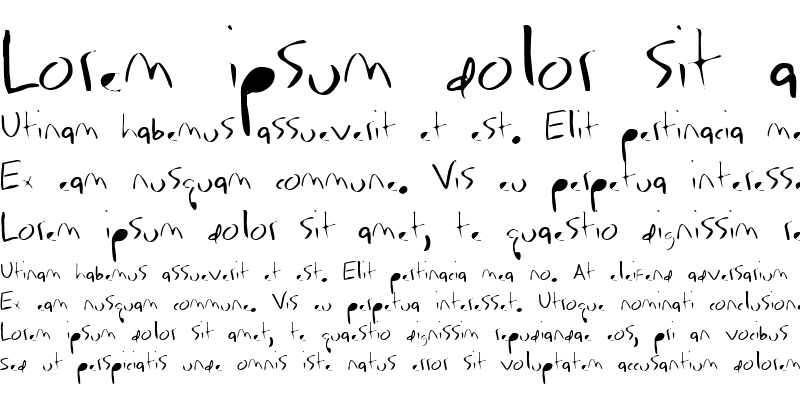 Lorem ipsum dolor sit a
Utinam habemus assueverit et est. Elit pertinacia me
Ex eam nusquam commune. Vis eu perpetua interesse
Lorem ipsum dolor sit amet, te quaestio dignissim re
Utinam habemus assueverit et est. Elit pertinacia mea no. At eleifend adversarium
Ex eam nusquam commune. Vis eu perpetua interesset. Utroque nominati conclusion
Lorem ipsum dolor sit amet, te quaestio dignissim repudiandae eos, pri an vocibus
Sed ut perspiciatis unde omnis iste natus error sit voluptatem accusantium dolorem